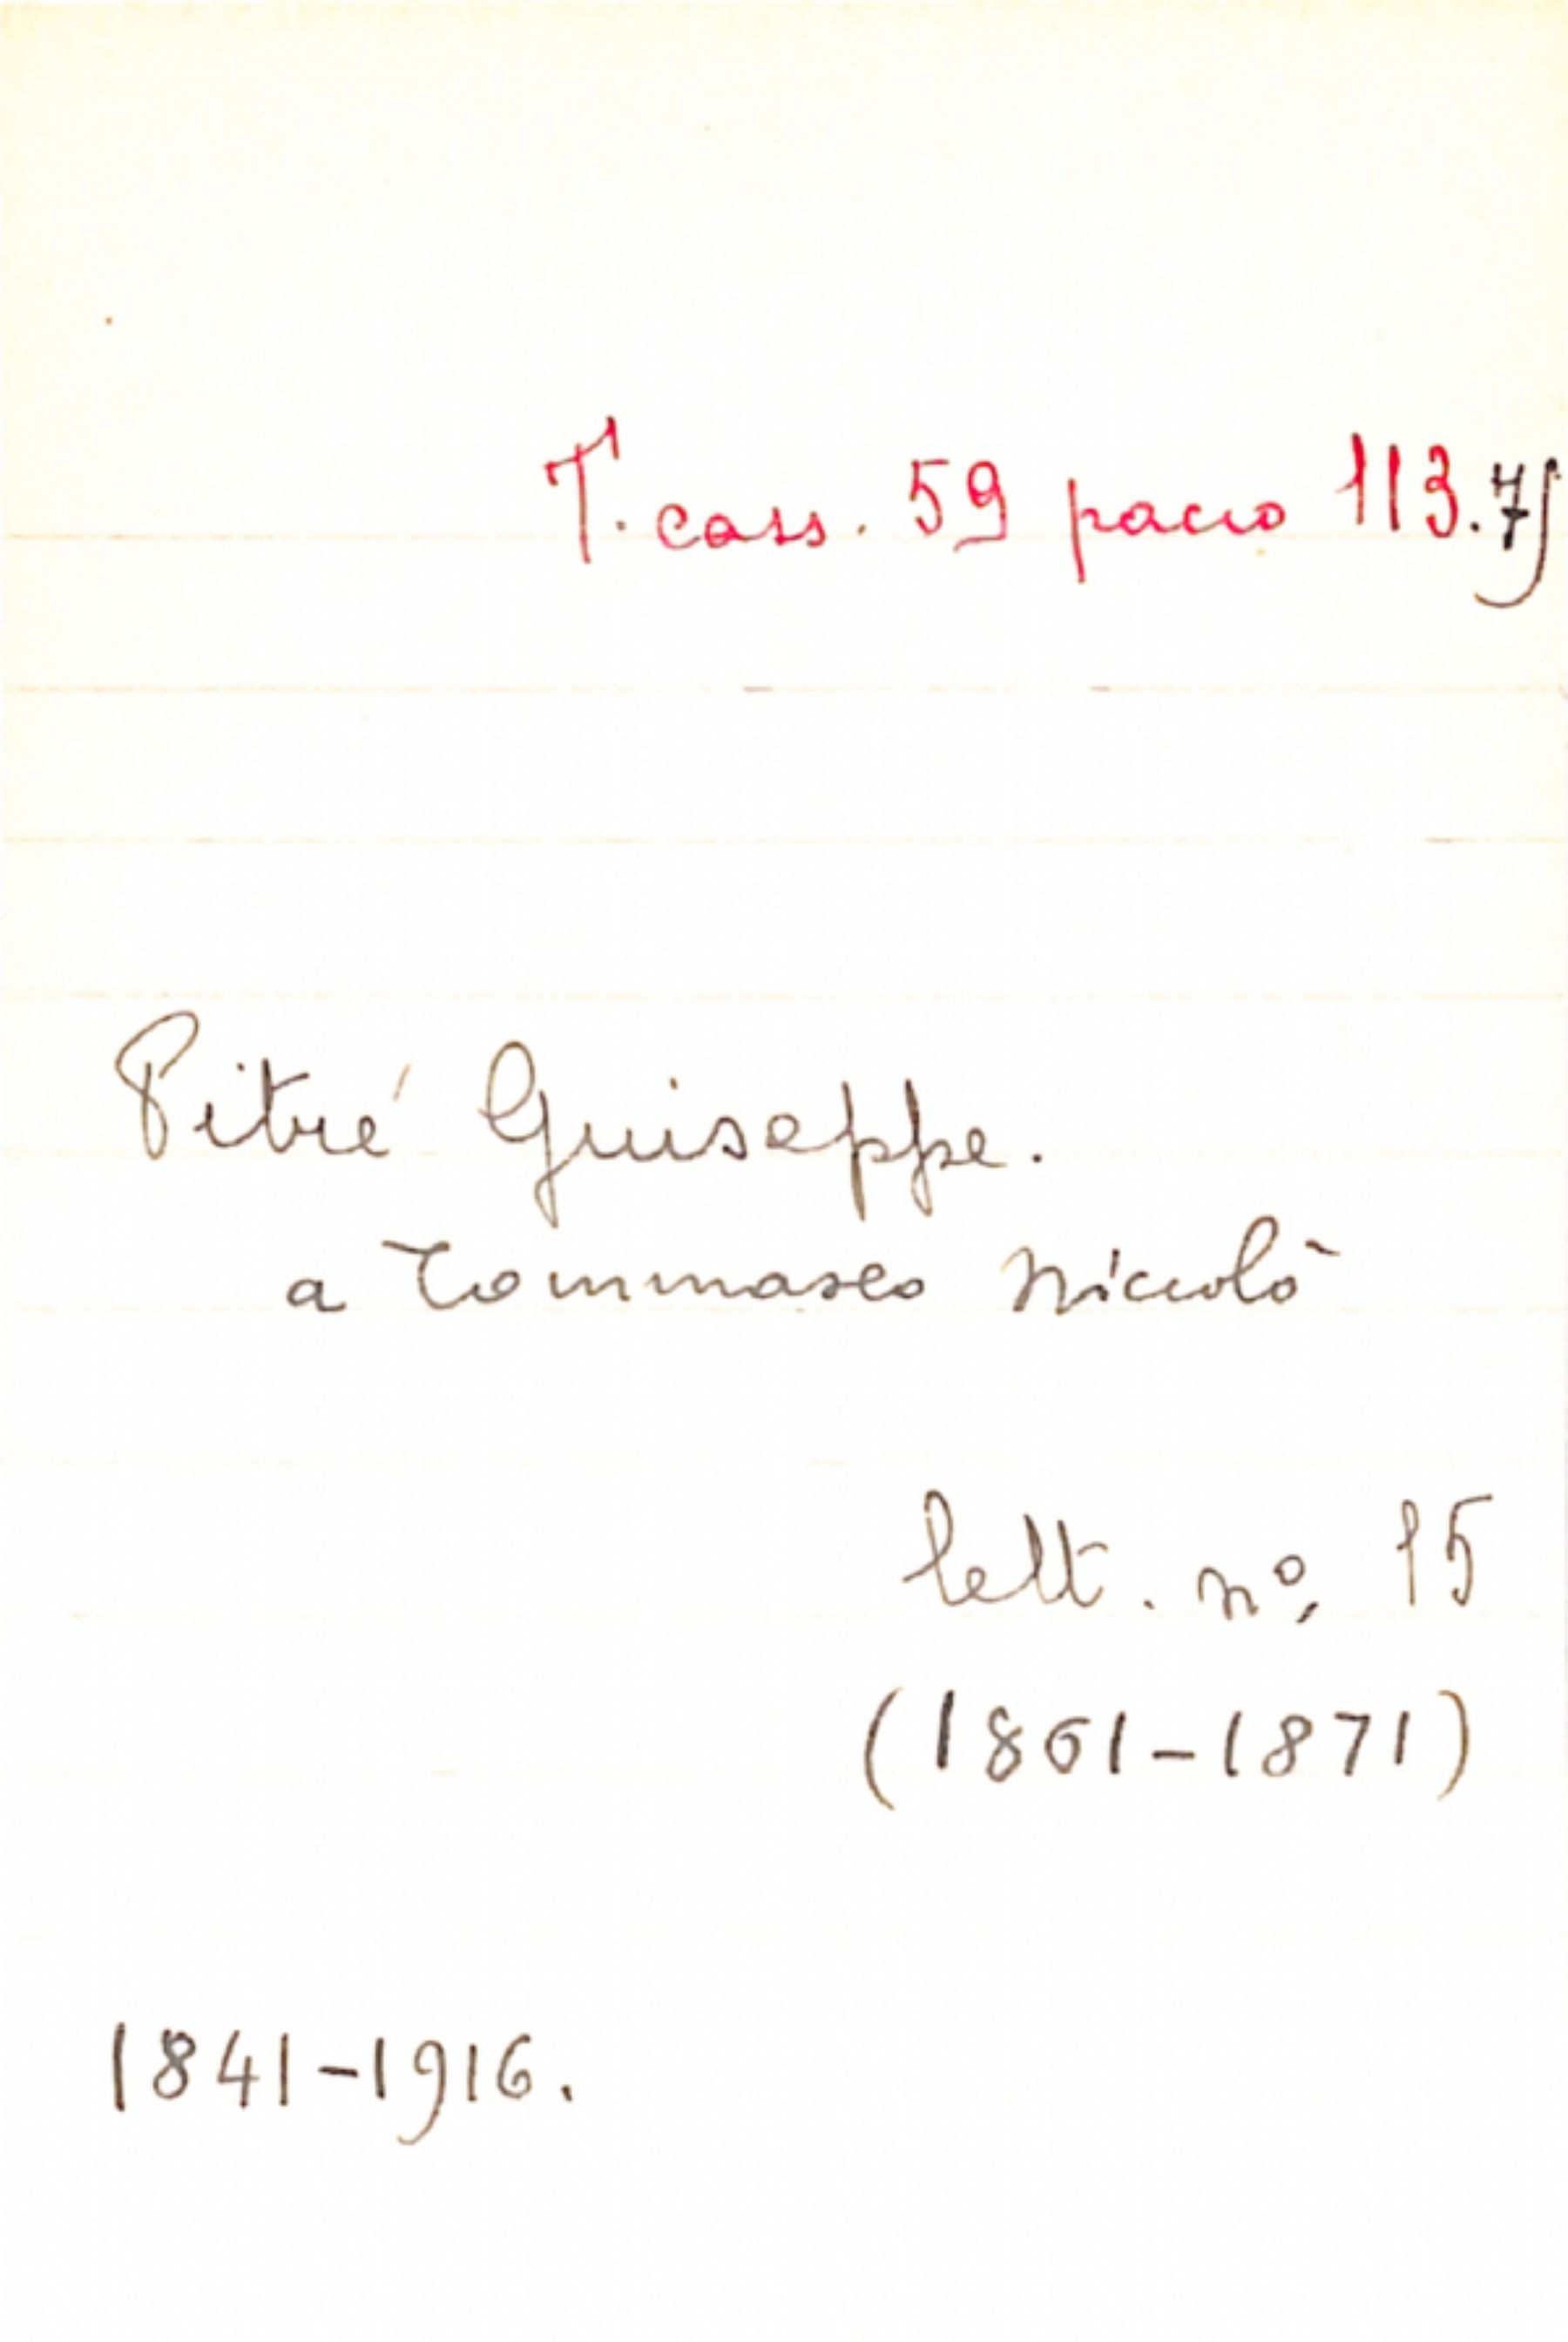 T. cass. 59 pacco 113.7
Pitré Giuseppe.
a Tommaseo Niccolò
lett. nº, 15
(1861-1871)
1841-1916.